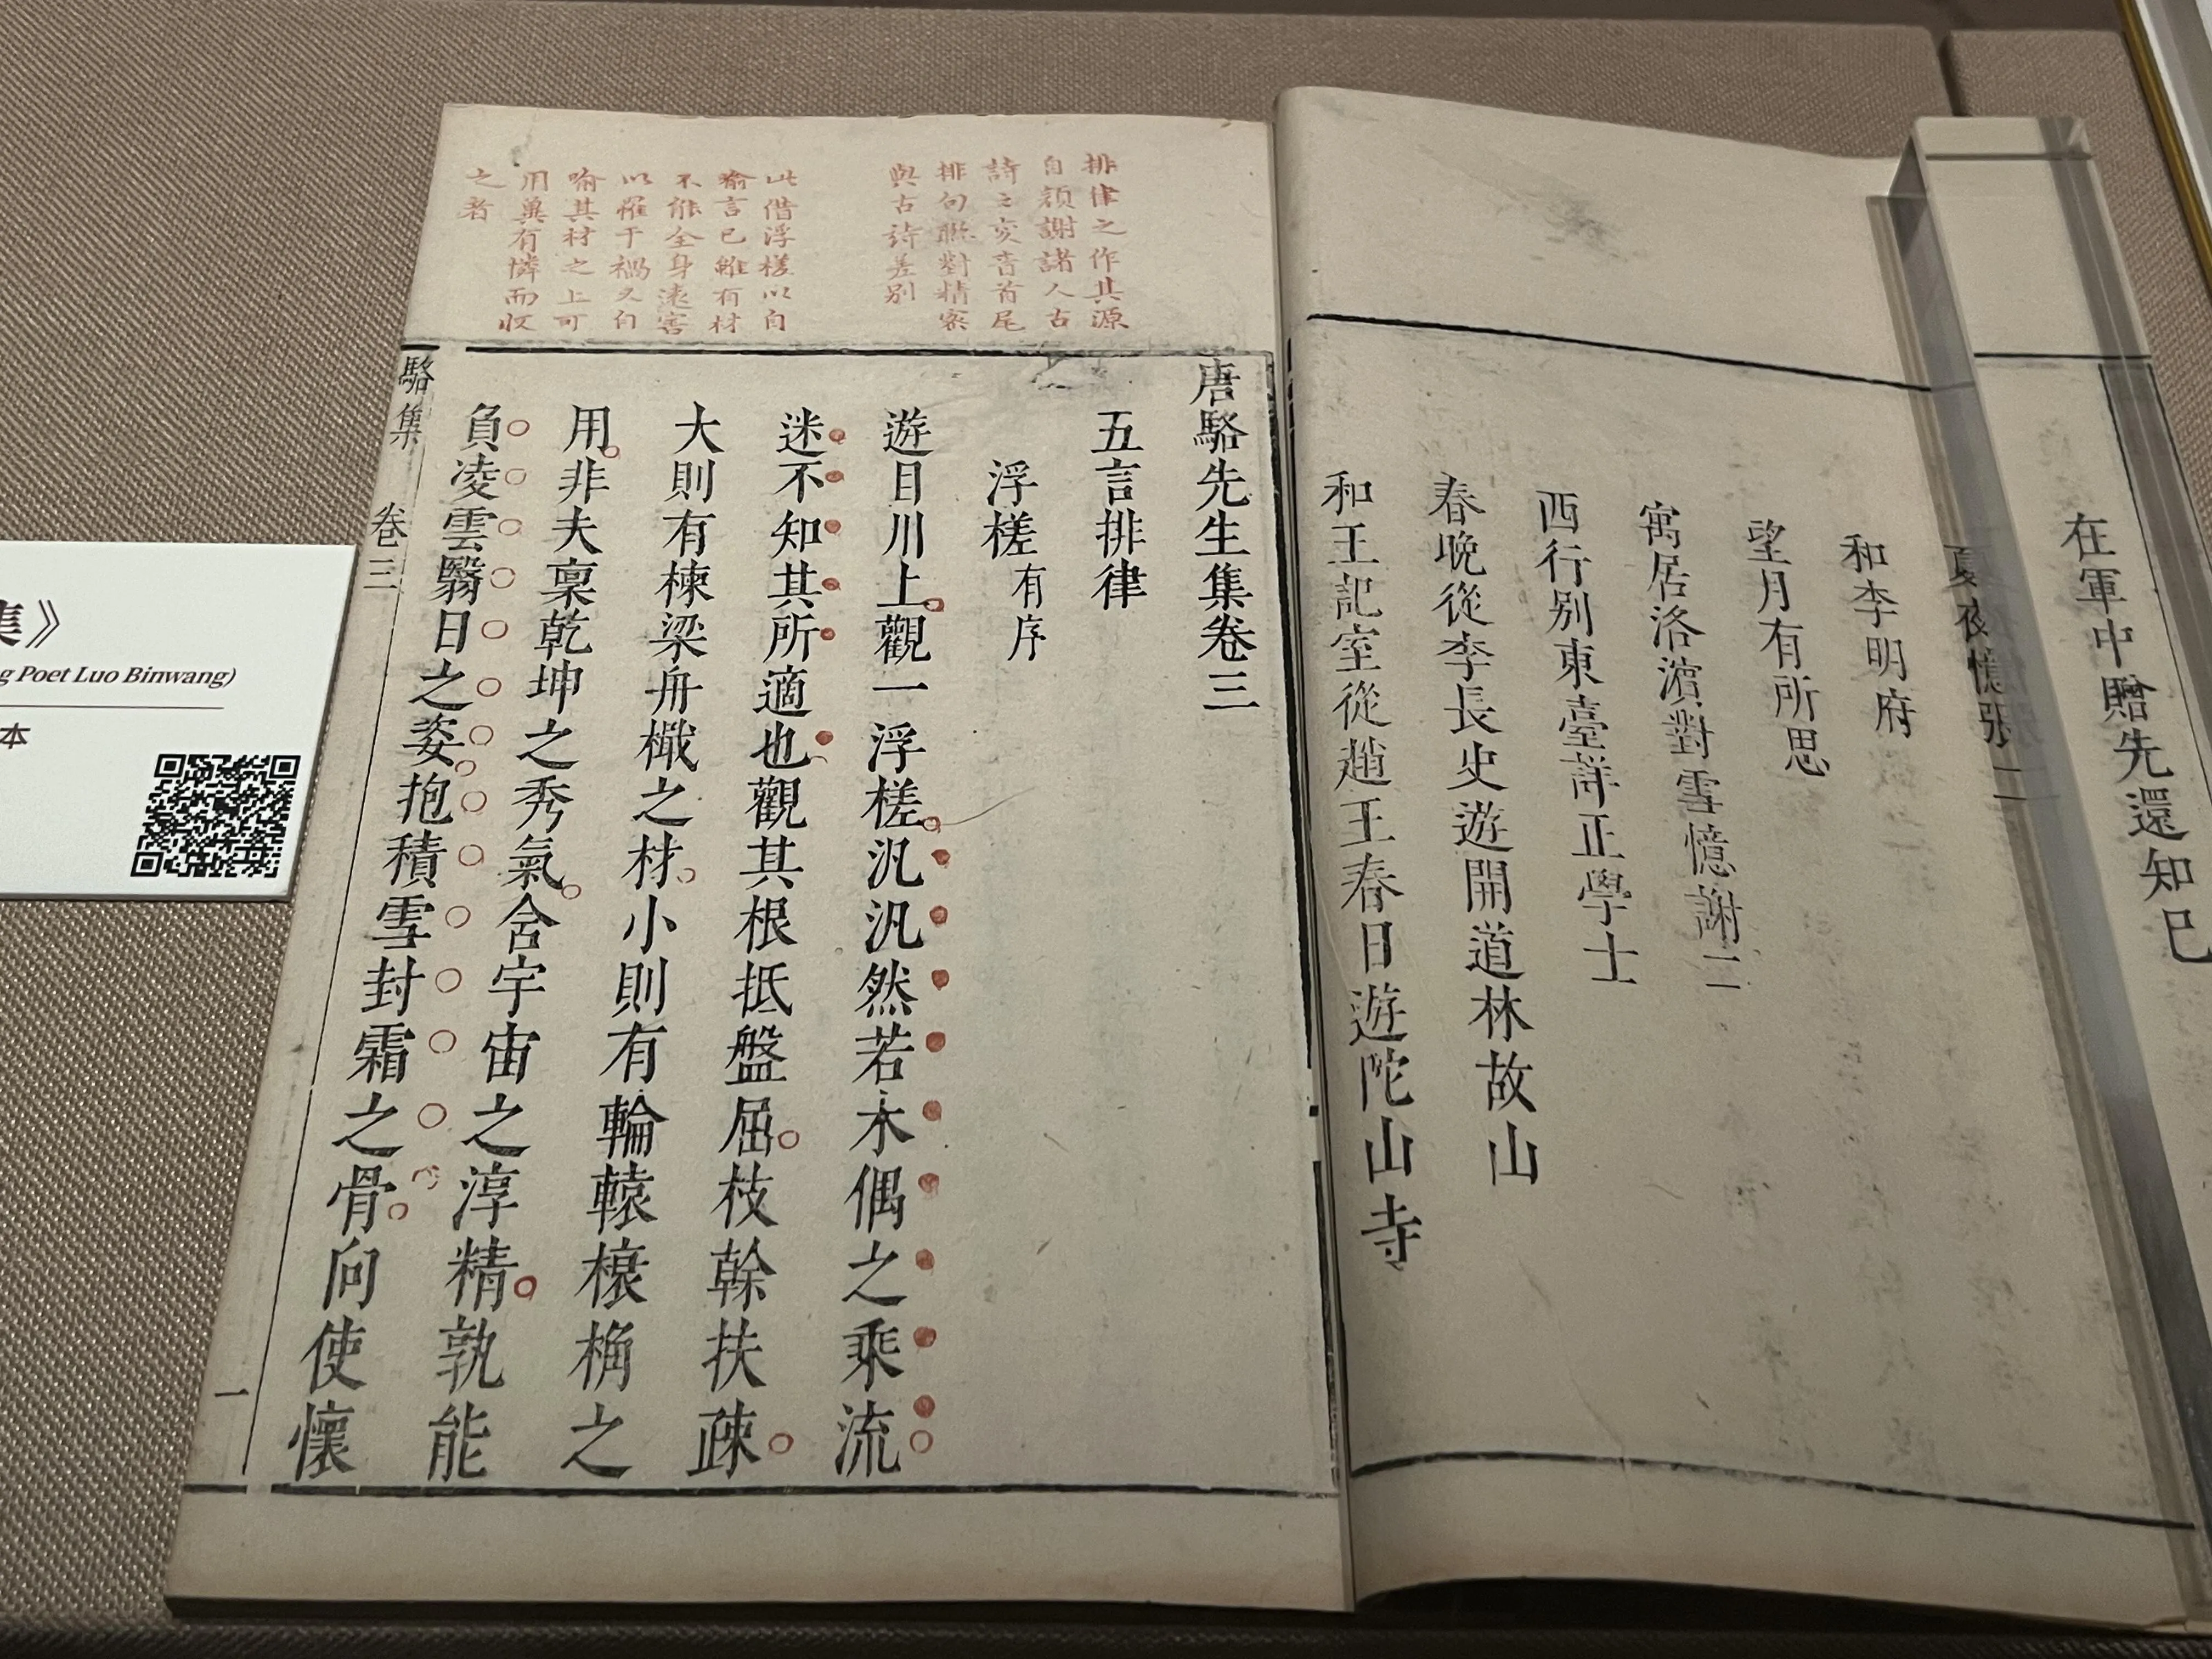 在軍中贈先還知己
夏夜憶張二
和李明府
望月有所思
寓居洛濱對雪憶謝二
西行别東臺詳正學士
春晚從李長史遊開道林故山
和王記室從趙王春日遊陀山寺
排律之作其源
自顔謝諸人古
詩之変首尾
排句聯對精宻
與古詩差别
此借浮槎以自
喻言已雖有材
不能全身遠害
以罹于禍又自
喻其材之上可
用冀有憐而收
之者
唐駱先生集卷三
五言排律
浮槎有序
遊目川上觀一浮槎汎汎然若木偶之乘流
迷不知其所適也觀其根抵盤屈枝幹扶疎
大則有棟梁舟檝之材小則有輪轅榱桷之
用非夫稟乾坤之秀氣含宇宙之淳精孰能
負凌雲翳日之姿抱積雪封霜之骨向使懷
駱集
卷三
一
集》
g Poet Luo Binwang)
本